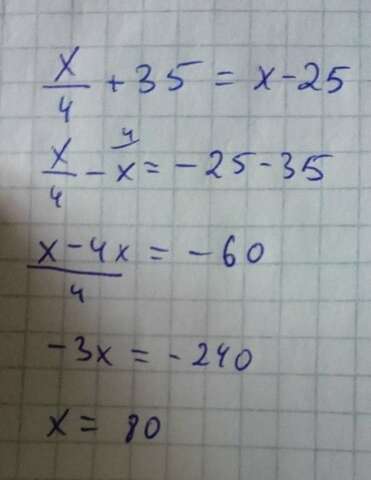 x/4 + 35 = x - 25
x/4 - x⁴ = -25 - 35
(x - 4x)/4 = -60
-3x = -240
x = 80